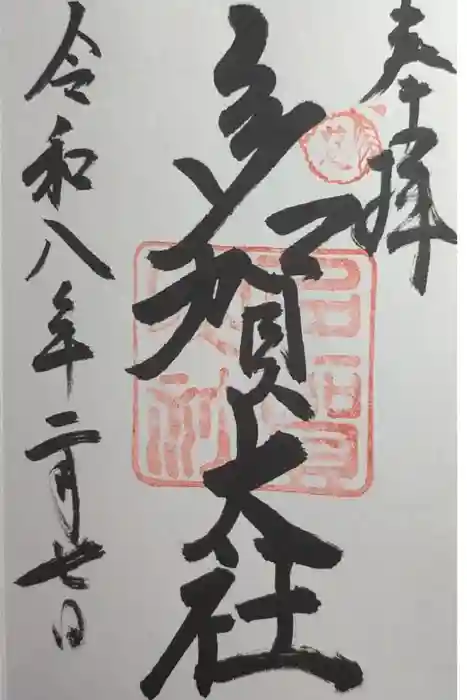 奉拝
多賀大社
令和八年二月七日